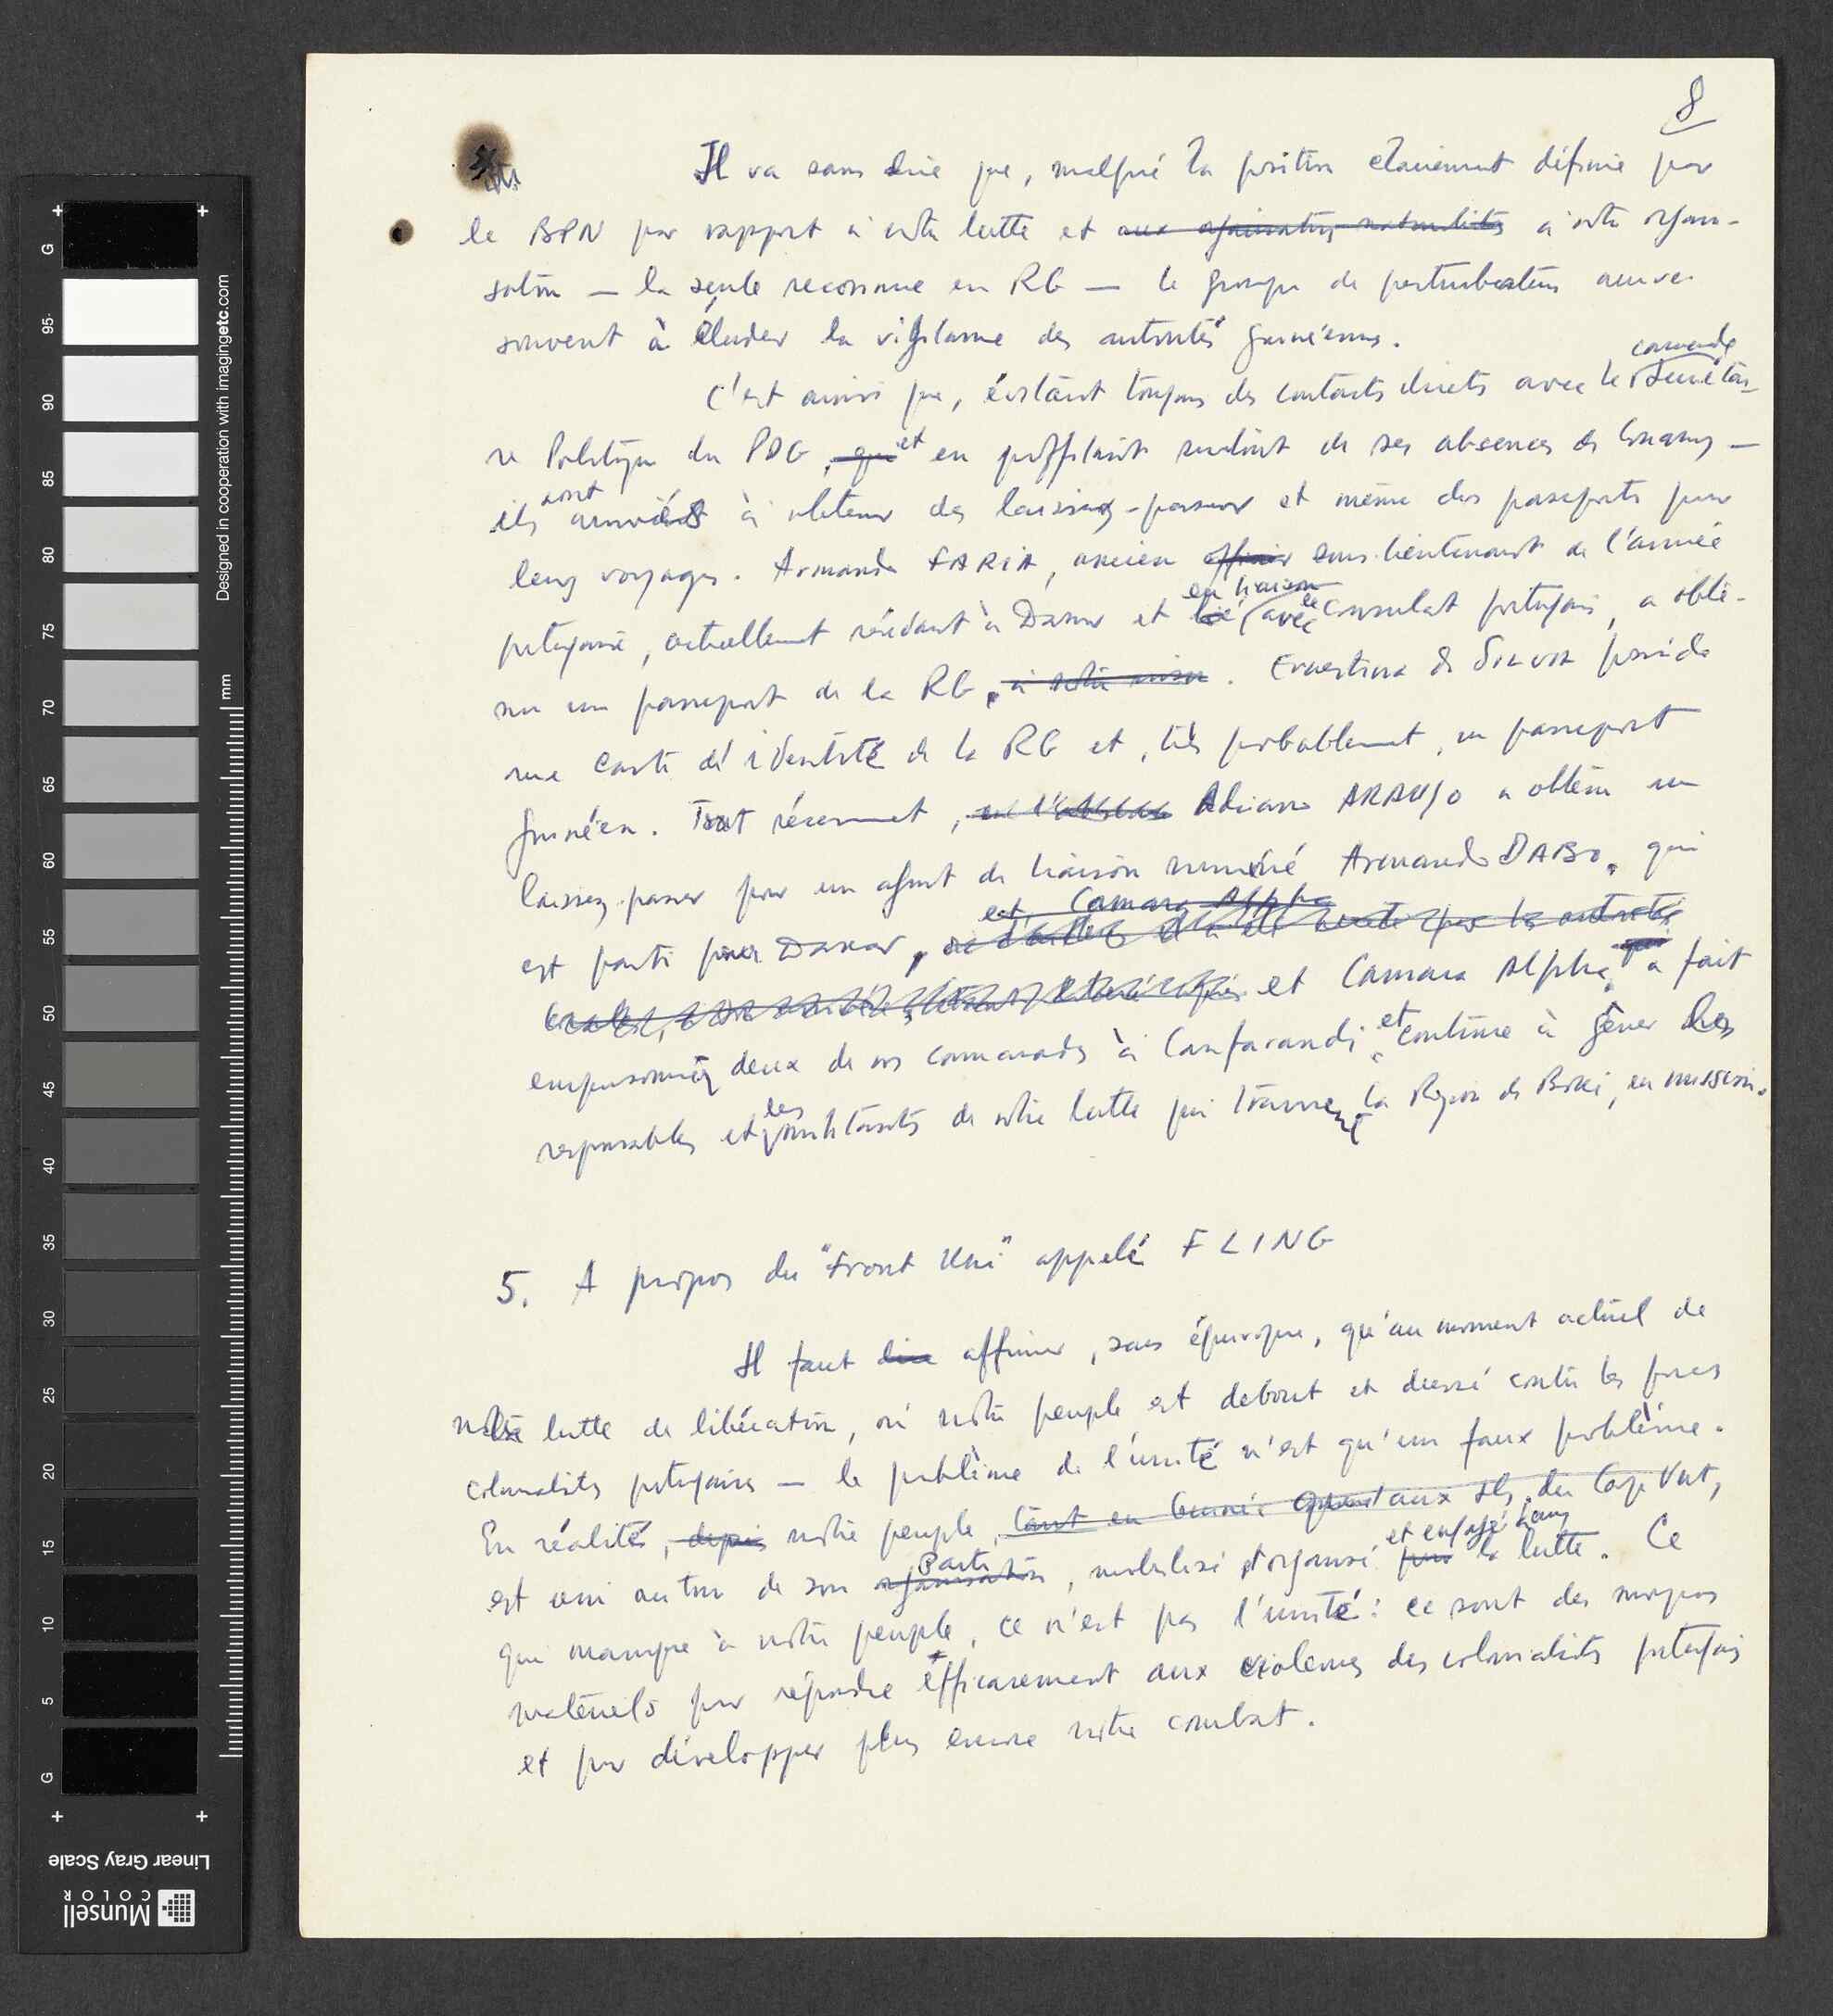 8
Il va sans dire que, malgré la position clairement définie par
le BPN par rapport à notre lutte et aux organisations nationalistes à notre organi-
sation — la seule reconnue en RG — le groupe de perturbateurs arrive
souvent à éluder la vigilance des autorités guinéennes.
camarade
C'est ainsi que, évitant toujours des contacts directs avec le Secrétai-
re Politique du PDG, qui et en profitant surtout de ses absences de Conakry —
ils sont arrivés à obtenir des laissez-passer et même des passeports pour
leurs voyages. Armando FARIA, ancien officier sous-lieutenant de l'armée
portugaise, actuellement résidant à Dakar et lié en liaison avec le Consulat portugais, a obte-
nu un passeport de la RG, à notre insu. Ernestina de SILVA possède
une carte d'identité de la RG et, très probablement, un passeport
guinéen. Tout récemment, en l'absence Adriano ARAUJO a obtenu un
laissez-passer pour un agent de liaison nommé Armando DABO, qui
et Camara Alpha
est parti pour Dakar, par les autorités
et Camara Alpha, qui a fait
emprisonner deux de nos camarades à Canfarandi, et continue à gêner les
responsables et les militants de notre lutte qui traversent la Région de Boké, en mission.
5. A propos du "Front Uni" appelé FLING
Il faut dire affirmer, sans équivoque, qu'au moment actuel de
notre lutte de libération, où notre peuple est debout et dressé contre les forces
colonialistes portugaises — le problème de l'unité n'est qu'un faux problème.
En réalité, depuis notre peuple, tant en Guinée qu'aux Iles du Cap Vert,
est uni autour de son organisation Parti, mobilisé et organisé pour et engagé dans la lutte. Ce
qui manque à notre peuple, ce n'est pas l'unité: ce sont des moyens
matériels pour répondre efficacement aux violences des colonialistes portugais
et pour développer plus encore notre combat.
Designed in cooperation with imagingetc.com
mm
G
95
90
85
80
75
70
65
60
55
50
45
40
35
30
25
20
15
10
5
G
Linear Gray Scale
Munsell
COLOR